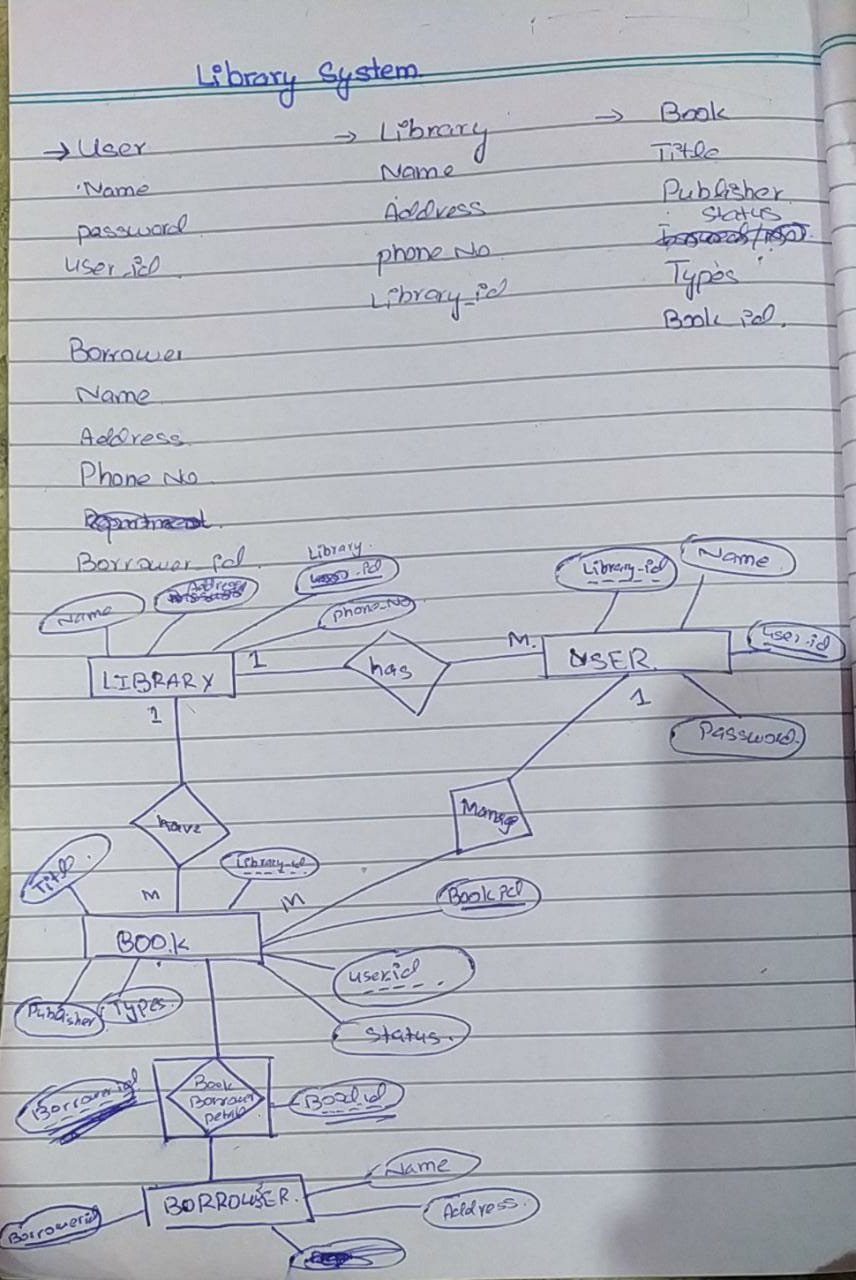 Library System
→ User
Name
password
user_id
→ Library
Name
Address
phone No
Library_id
→ Book
Title
Publisher
Status
Types
Book id.
Borrower
Name
Address
Phone No
Department.
Borrower id.
Name
Address
Library
id
phone-No
LIBRARY
1
has
M.
USER.
Library-id
Name
user-id
Password.
1
1
have
Manage
Title.
Library-id
M
M
Book id
BOOK
userid
Publisher
Types.
Status.
Borrowerid
Book
Borrower
Details
Bookid
Name
BORROWER.
Address.
Borrowerid